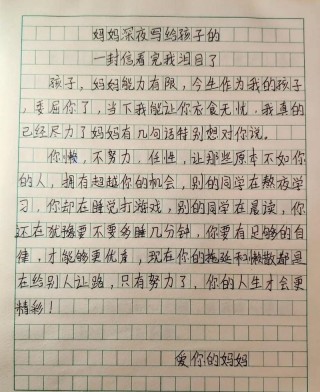 妈妈深夜写给孩子的
一封信看完我泪目了
孩子，妈妈能力有限，今生作为我的孩子
，委屈你了，当下我能让你衣食无忧，我真的
已经尽力了妈妈有几句话特别想对你说。
你懒，不努力，任性，让那些原本不如你
的人，拥有超越你的机会，别的同学在熬夜学
习，你却在睡觉打游戏，别的同学在晨读，你
还在犹豫要不要多睡几分钟，你要有足够的自
律，才能够更优秀，现在你的拖延和懒散都是
在给别人让路，只有努力了，你的人生才会更
精彩！
爱你的妈妈